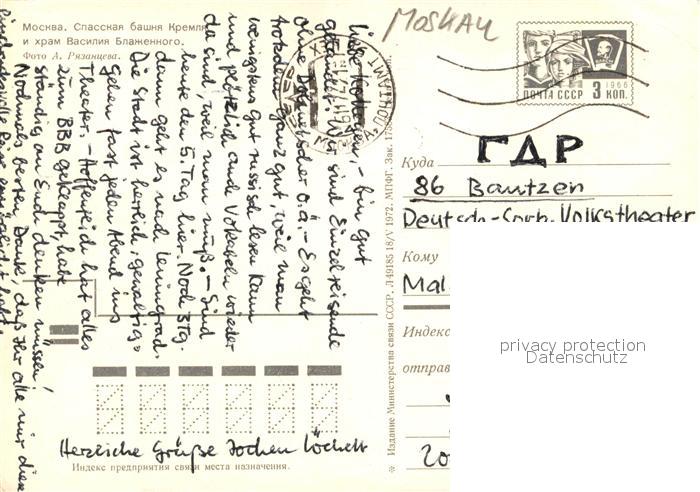 Москва. Спасская башня Кремля
и храм Василия Блаженного.
Фото А. Рязанцева.
MOSKAU
ПОЧТА СССР
1966
3 КОП.
Куда
ГДР
86 Bautzen
Deutsch-Sorb. Volkstheater
Кому
Mal
Индекс
отправ
20
Издание Министерства связи СССР. Л 49185 18/V 1972. МПФГ. Зак. 175
privacy protection
Datenschutz
Liebe Kollegen, - bin gut
gelandet. Wir sind Einzelreisende
ohne Dolmetscher o.ä. - Es geht
trotzdem ganz gut, weil man
wenigstens gut russisch lesen kann
und plötzlich auch Vokabeln wieder
da sind, weil man muß. - Sind
heute den 5. Tag hier. Noch 3 Tg.
dann geht es nach Leningrad.
Die Stadt ist herrlich, gewaltig,
Gehen fast jeden Abend ins
Theater. - Hoffentlich hat alles
zum BBB geklappt, habe
ständig an Euch denken müssen!
Nochmals besten Dank, daß Ihr alle mir diese
Reise ermöglicht habt!
Herzliche Grüße Jochen
Индекс предприятия связи места назначения.